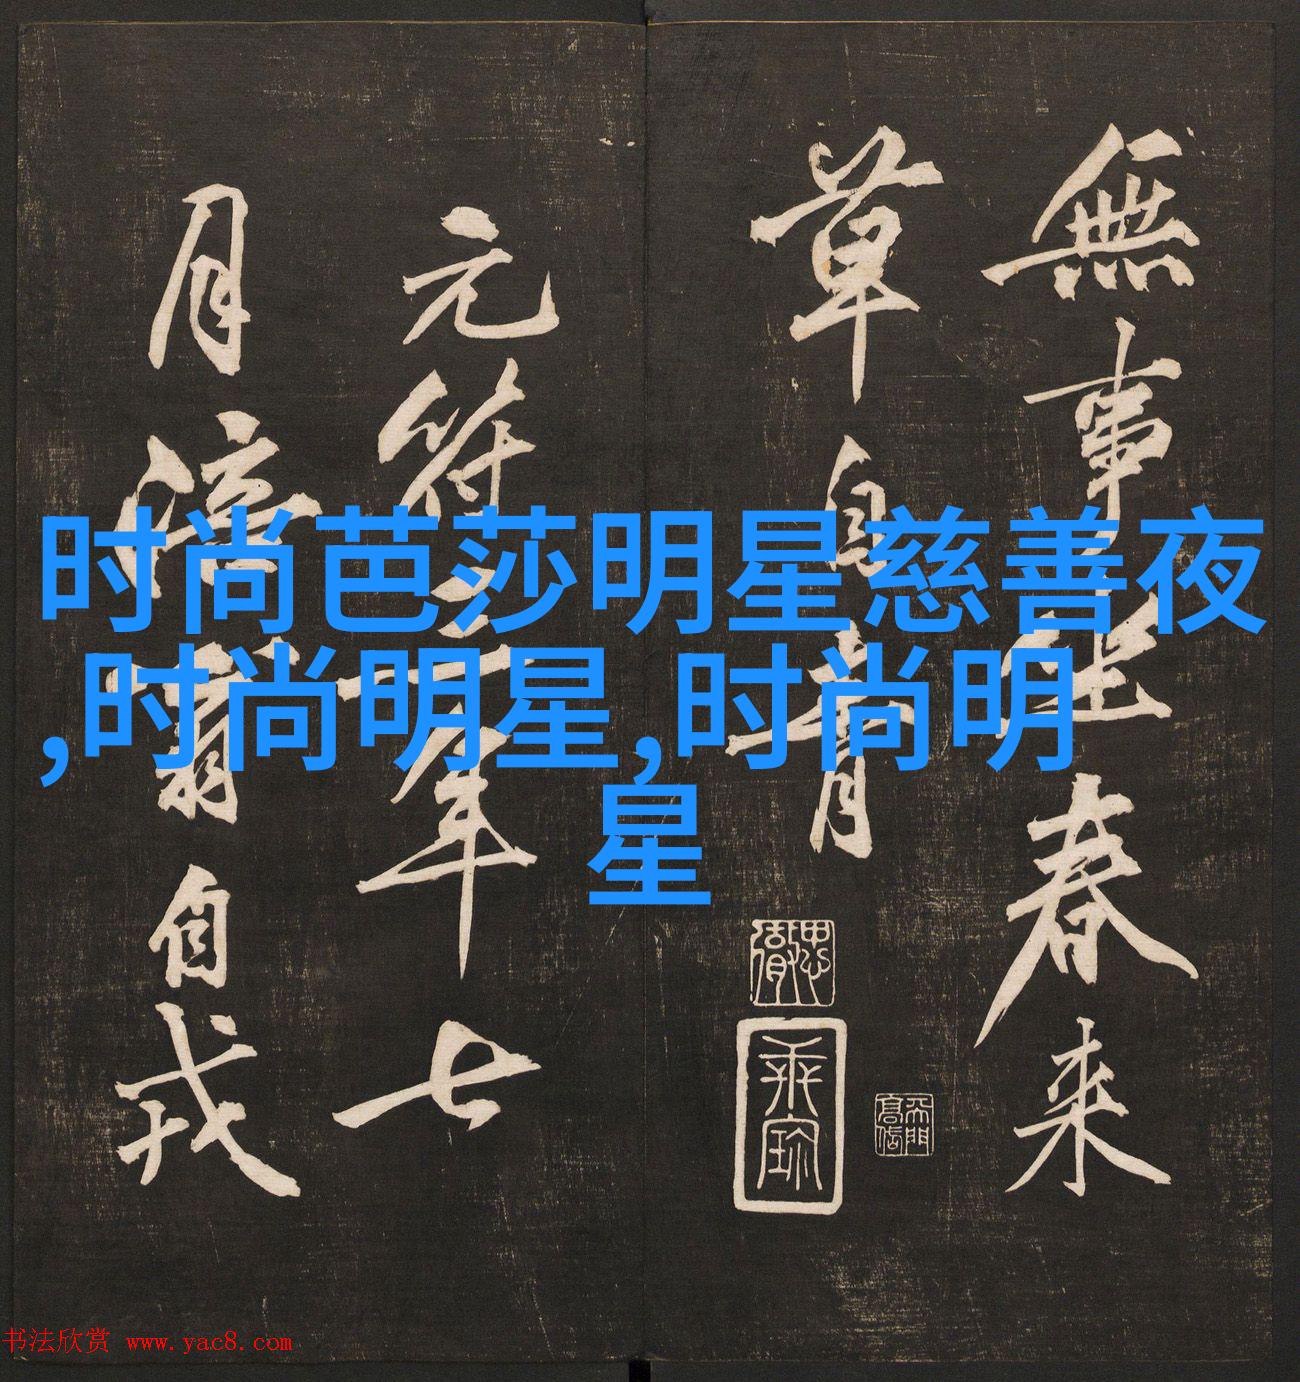 無事坐春来
草自青
元符三年七
月涪翁自戎
时尚芭莎明星慈善夜
,时尚明星,时尚明
星
书法欣赏 www.yac8.com